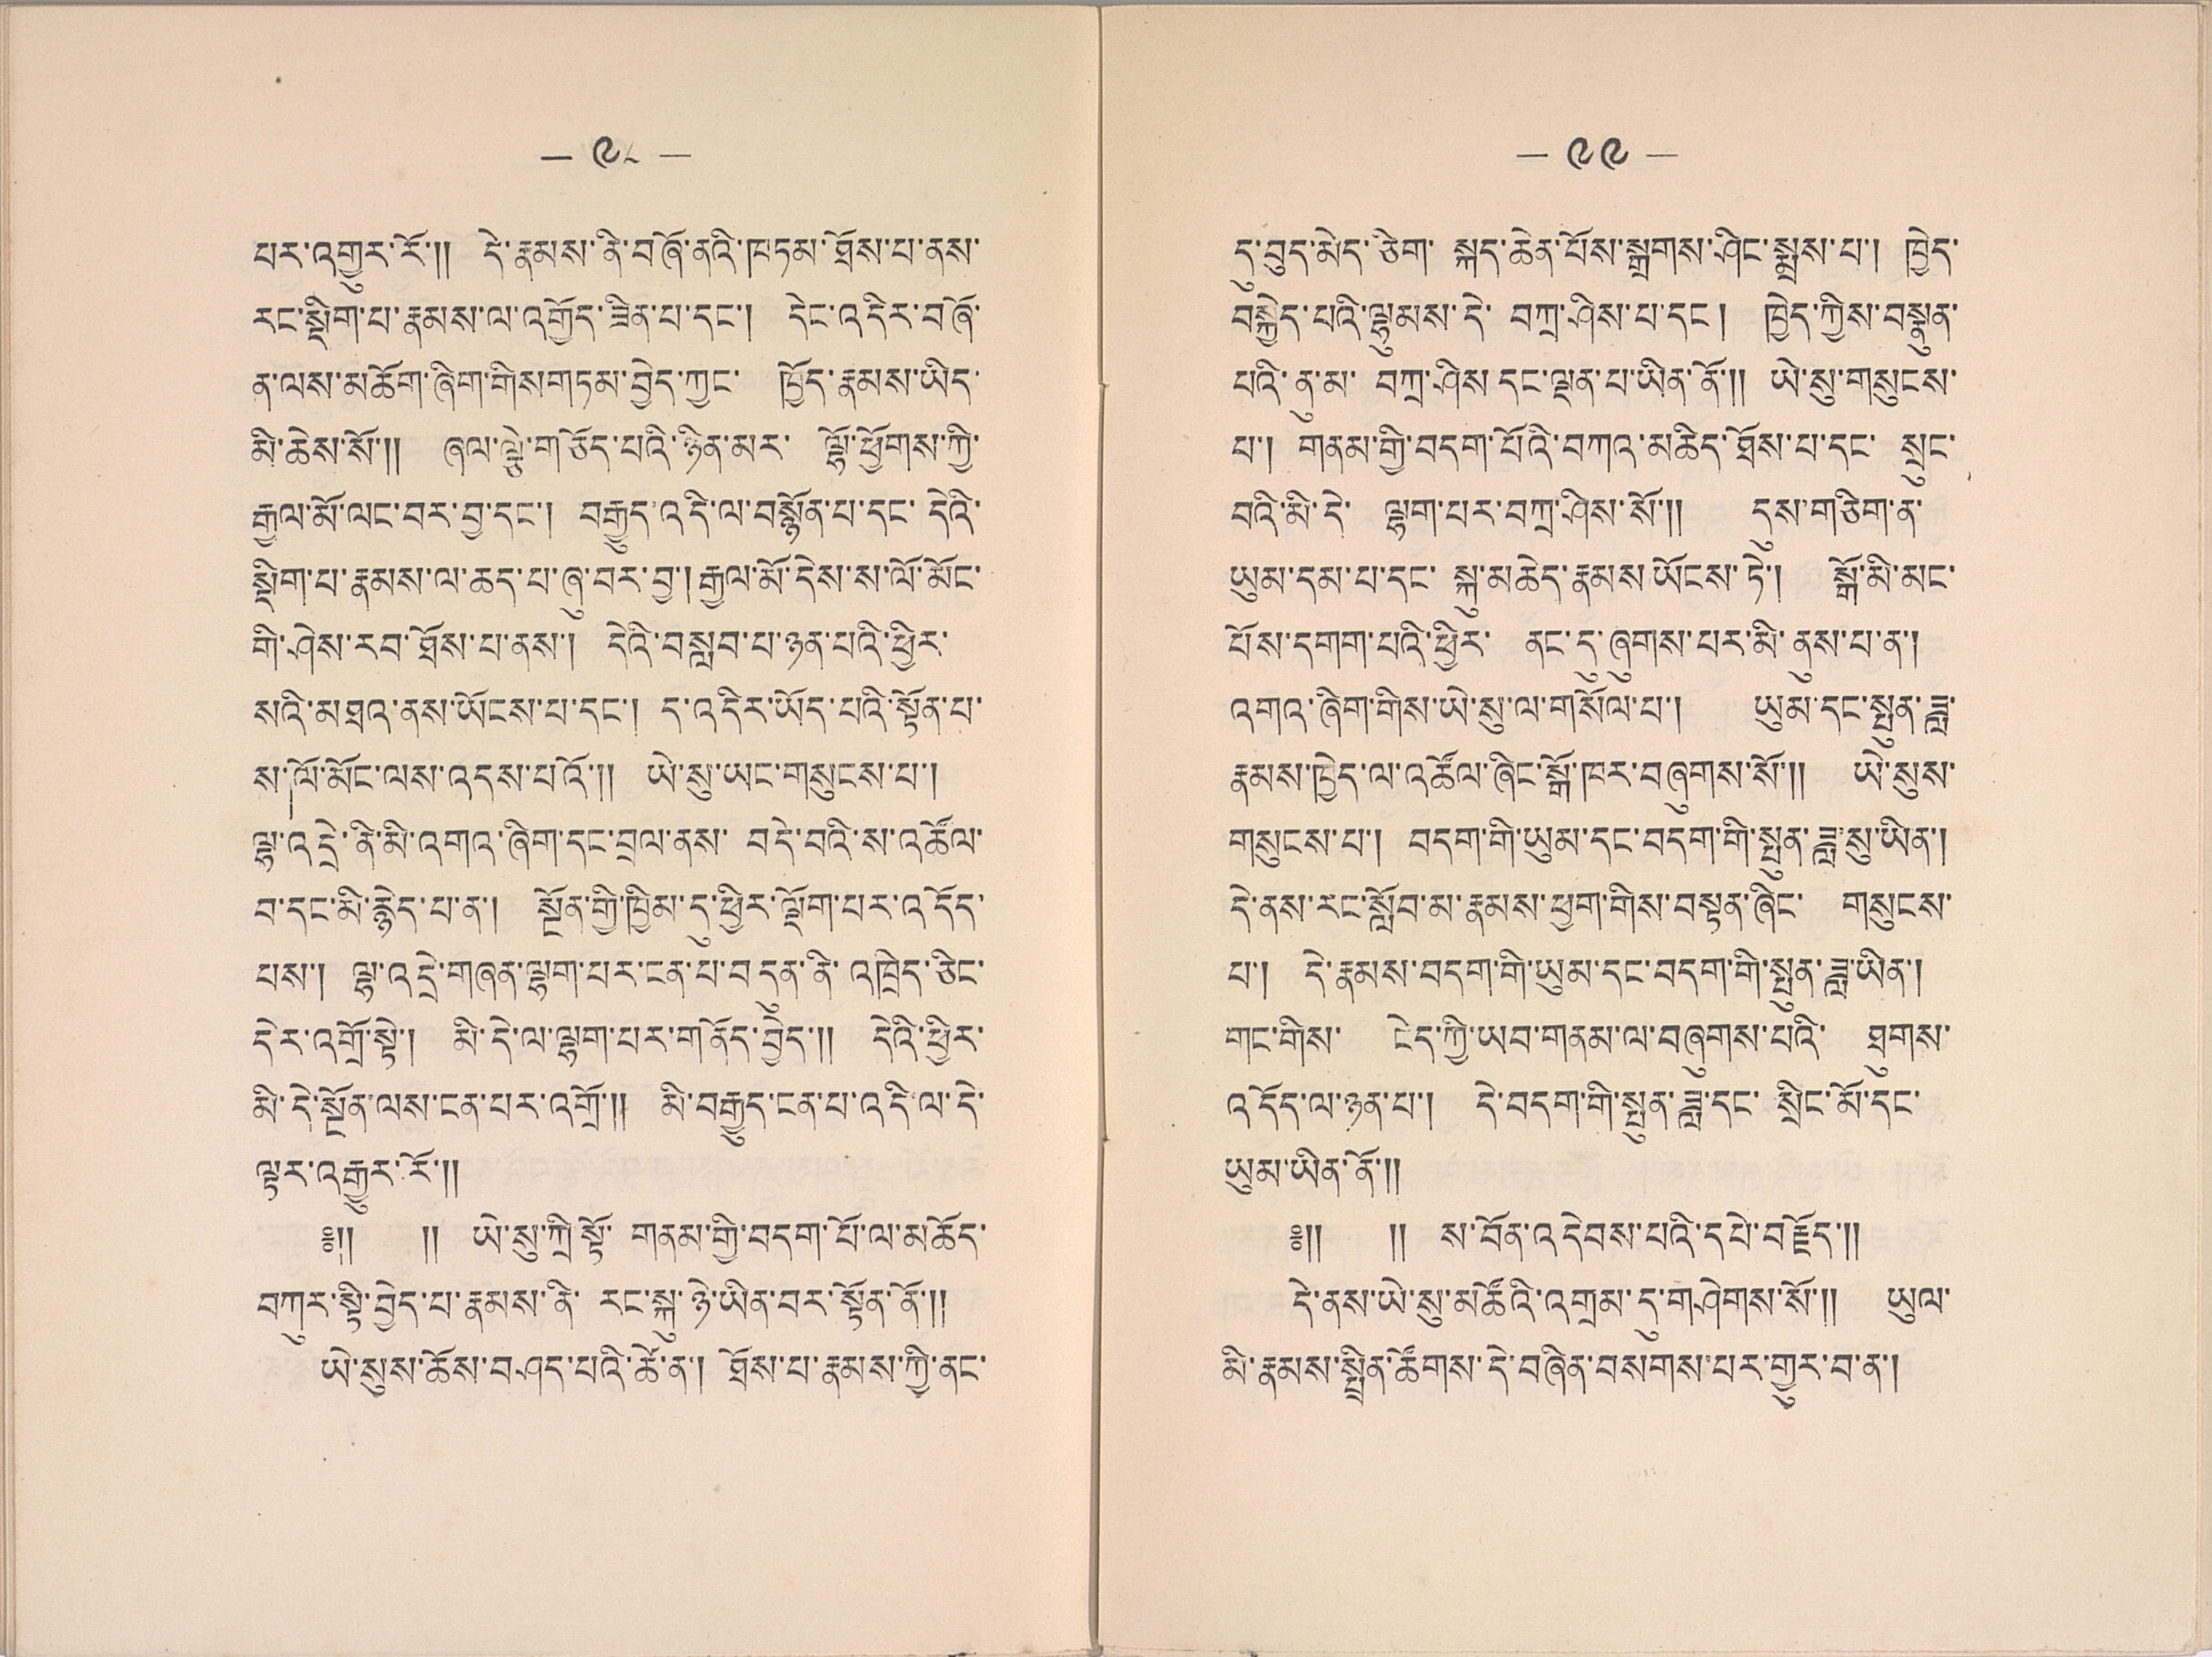 — ༩༨ —
པར་འགྱུར་རོ་།། དེ་རྣམས་ནི་བཞོ་ནའི་ཁཏམ་ཐོས་པ་ནས་
རང་སྡིག་པ་རྣམས་ལ་འགྱོད་ཟིན་པ་དང་། དེང་འདིར་བཞོ་
ན་ལས་མཆོག་ཞིག་གིསགཏམ་བྱེད་ཀྱང་ ཁྱོད་རྣམས་ཡིད་
མི་ཆེས་སོ་།། ཞལ་ལྕེ་གཅོད་པའི་ཉིན་མར་ ལྷོ་ཕྱོགས་ཀྱི་
རྒྱལ་མོ་ལང་བར་བྱ་དང་། བརྒྱུད་འདི་ལ་བསྙོན་པ་དང་ དེའི་
སྡིག་པ་རྣམས་ལ་ཆད་པ་ཞུ་བར་བྱ་། རྒྱལ་མོ་དེས་ས་ལོ་མོང་
གི་ཤེས་རབ་ཐོས་པ་ནས་། དེའི་བསླབ་པ་ཉན་པའི་ཕྱིར་
སའི་མཐའ་ནས་ཡོངས་པ་དང་། ད་འདིར་ཡོད་པའི་སྟོན་པ་
ས་ལོ་མོང་ལས་འདས་པའོ་།། ཡེ་སུ་ཡང་གསུངས་པ་།
ལྷ་འདྲེ་ནི་མི་འགའ་ཞིག་དང་བྲལ་ནས་ བདེ་བའི་ས་འཚོལ་
བ་དང་མི་རྙེད་པ་ན་། སྔོན་གྱི་ཁྱིམ་དུ་ཕྱིར་ལྡོག་པར་འདོད་
པས་། ལྷ་འདྲེ་གཞན་ལྷག་པར་ངན་པ་བདུན་ནི་འཁྲིད་ཅིང་
དེར་འགྲོ་སྟེ་། མི་དེ་ལ་ལྷག་པར་གནོད་བྱེད་།། དེའི་ཕྱིར་
མི་དེ་སྔོན་ལས་ངན་པར་འགྲོ་།། མི་བརྒྱུད་ངན་པ་འདི་ལ་དེ་
ལྟར་འགྱུར་རོ་།།
༈།། །། ཡེ་སུ་ཀྲི་སྟོ་ གནམ་གྱི་བདག་པོ་ལ་མཆོད་
བཀུར་སྟི་བྱེད་པ་རྣམས་ནི་ རང་སྐུ་ཉེ་ཡིན་བར་སྟོན་ནོ་།།
ཡེ་སུས་ཆོས་བཤད་པའི་ཚེ་ན་། ཐོས་པ་རྣམས་ཀྱི་ནང་
— ༩༩ —
དུ་བུད་མེད་ཅིག་ སྐད་ཆེན་པོས་སྒྲགས་ཤིང་སྨྲས་པ་། ཁྱེད་
བསྐྱེད་པའི་ལྷུམས་དེ་ བཀྲ་ཤིས་པ་དང། ཁྱེད་ཀྱིས་བསྣུན་
པའི་ནུ་མ་ བཀྲ་ཤིས་དང་ལྡན་པ་ཡིན་ནོ་།། ཡེ་སུ་གསུངས་
པ་། གནམ་གྱི་བདག་པོའི་བཀའ་མཆིད་ཐོས་པ་དང་ སྲུང་
བའི་མི་དེ་ ལྷག་པར་བཀྲ་ཤིས་སོ་།། དུས་གཅིག་ན་
ཡུམ་དམ་པ་དང་ སྐུ་མཆེད་རྣམས་ཡོངས་ཏེ་། སྒོ་མི་མང་
པོས་དགག་པའི་ཕྱིར་ ནང་དུ་ཞུགས་པར་མི་ནུས་པ་ན་།
འགའ་ཞིག་གིས་ཡེ་སུ་ལ་གསོལ་པ་། ཡུམ་དང་སྤུན་ཟླ་
རྣམས་ཁྱེད་ལ་འཚོལ་ཞིང་སྒོ་ཁར་བཞུགས་སོ་།། ཡེ་སུས་
གསུངས་པ་། བདག་གི་ཡུམ་དང་བདག་གི་སྤུན་ཟླ་སུ་ཡིན་།
དེ་ནས་རང་སློབ་མ་རྣམས་ཕྱག་གིས་བསྟན་ཞིང་ གསུངས་
པ་། དེ་རྣམས་བདག་གི་ཡུམ་དང་བདག་གི་སྤུན་ཟླ་ཡིན་།
གང་གིས་ ངེད་ཀྱི་ཡབ་གནམ་ལ་བཞུགས་པའི་ ཐུགས་
འདོད་ལ་ཉན་པ་། དེ་བདག་གི་སྤུན་ཟླ་དང་ སྲིང་མོ་དང་
ཡུམ་ཡིན་ནོ་།།
༈།། །། ས་བོན་འདེབས་པའི་དཔེ་བརྗོད་།།
དེ་ནས་ཡེ་སུ་མཚོའི་འགྲམ་དུ་གཤེགས་སོ་།། ཡུལ་
མི་རྣམས་སྤྲིན་ཚོགས་དེ་བཞིན་བསགས་པར་གྱུར་བ་ན་།